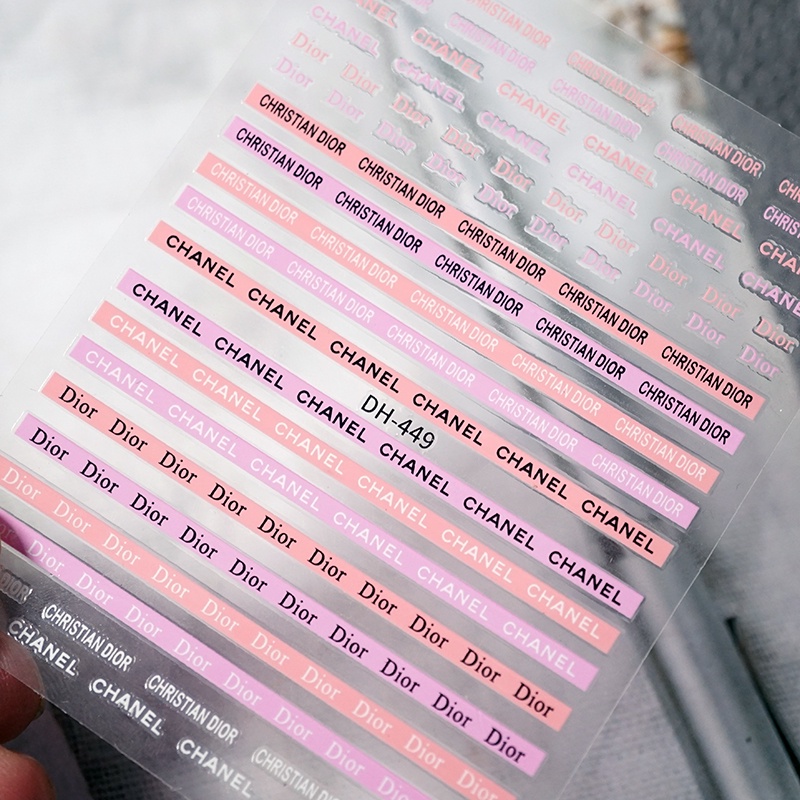 CHRISTIAN DIOR CHRISTIAN DIOR CHRISTIAN DIOR
CHRISTIAN DIOR CHRISTIAN DIOR CHRISTIAN DIOR
CHANEL CHANEL CHANEL CHANEL
CHANEL CHANEL CHANEL CHANEL CHANEL CHANEL
Dior Dior Dior Dior Dior Dior Dior Dior Dior Dior
Dior Dior Dior Dior Dior Dior Dior Dior Dior Dior
CHRISTIAN DIOR CHRISTIAN DIOR CHRISTIAN DIOR CHRISTIAN DIOR CHRISTIAN DIOR
CHRISTIAN DIOR CHRISTIAN DIOR CHRISTIAN DIOR CHRISTIAN DIOR CHRISTIAN DIOR
CHRISTIAN DIOR CHRISTIAN DIOR CHRISTIAN DIOR CHRISTIAN DIOR CHRISTIAN DIOR
CHRISTIAN DIOR CHRISTIAN DIOR CHRISTIAN DIOR CHRISTIAN DIOR CHRISTIAN DIOR
CHANEL CHANEL CHANEL CHANEL CHANEL CHANEL
DH-449
CHANEL CHANEL CHANEL CHANEL CHANEL CHANEL
CHANEL CHANEL CHANEL CHANEL CHANEL CHANEL
CHANEL CHANEL CHANEL CHANEL CHANEL CHANEL
Dior Dior Dior Dior Dior Dior Dior Dior Dior Dior
Dior Dior Dior Dior Dior Dior Dior Dior Dior Dior
Dior Dior Dior Dior Dior Dior Dior Dior Dior Dior
Dior Dior Dior Dior Dior Dior Dior
DIOR CHRISTIAN DIOR CHRISTIAN DIOR CHRISTIAN DIOR
CHANEL CHANEL CHANEL